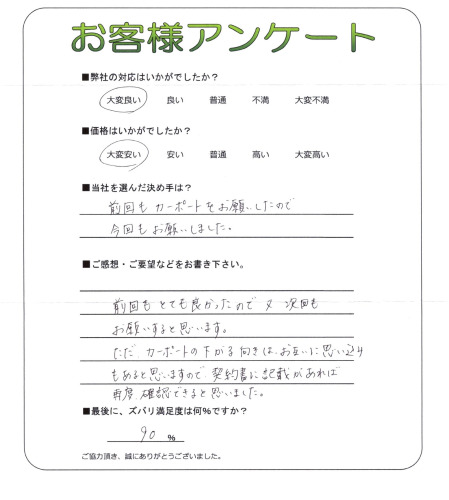 お客様アンケート
■弊社の対応はいかがでしたか？
大変良い 良い 普通 不満 大変不満
■価格はいかがでしたか？
大変安い 安い 普通 高い 大変高い
■当社を選んだ決め手は？
前回も カーポートをお願いしたので
今回もお願いしました。
■ご感想・ご要望などをお書き下さい。
前回も とても良かったので 又 次回も
お願いすると思います。
ただ カーポートの下がる向きは、お互いに思い込み
もあると思いますので 契約書に記載があれば
再度 確認できると思いました。
■最後に、ズバリ満足度は何％ですか？
90 ％
ご協力頂き、誠にありがとうございました。